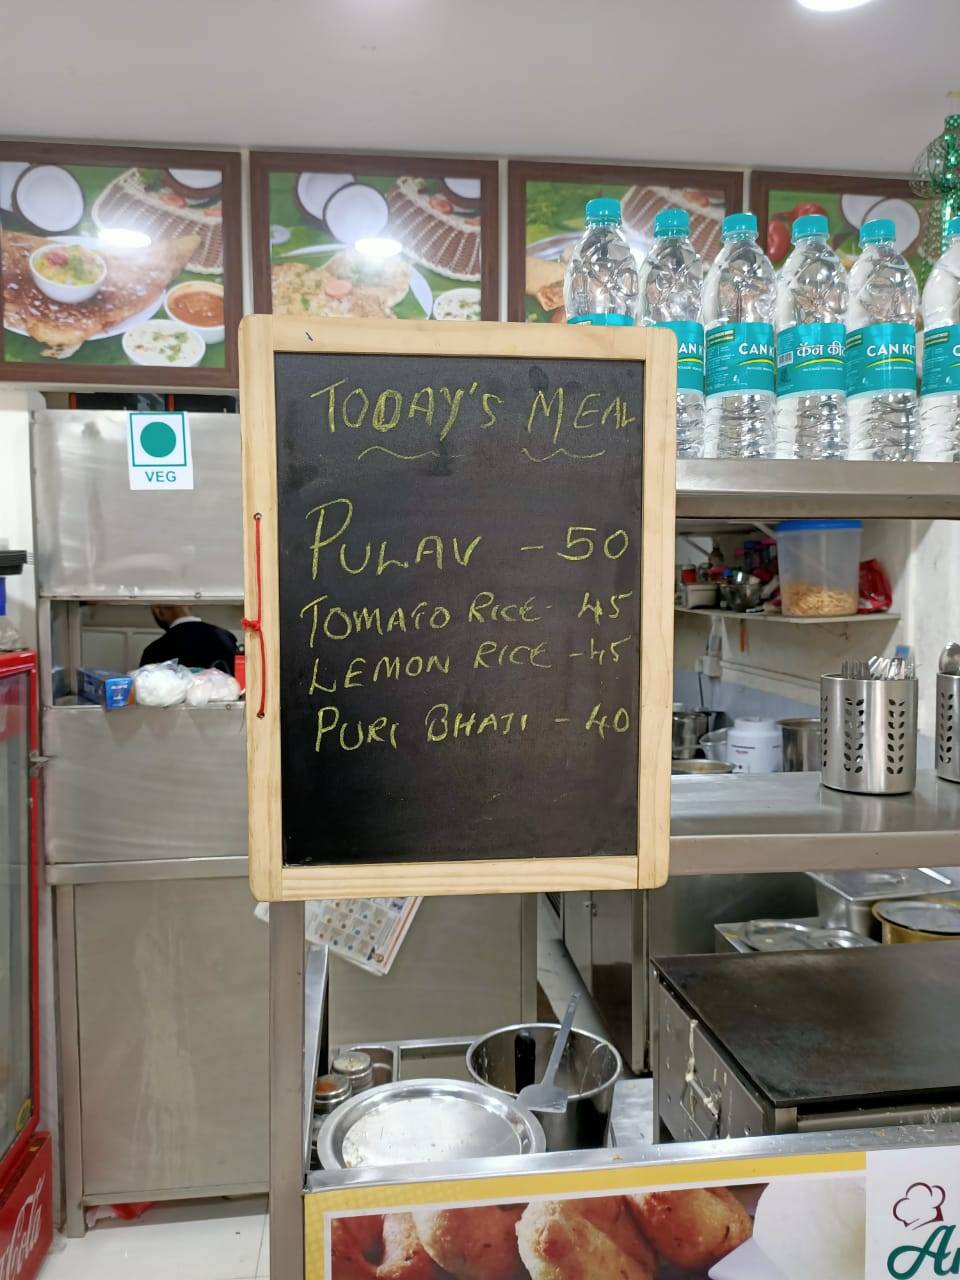 TODAY'S MEAL
PULAV - 50
TOMATO RICE - 45
LEMON RICE - 45
PURI BHAJI - 40
VEG
CAN K
CAN
कॅन की
CAN KI
C